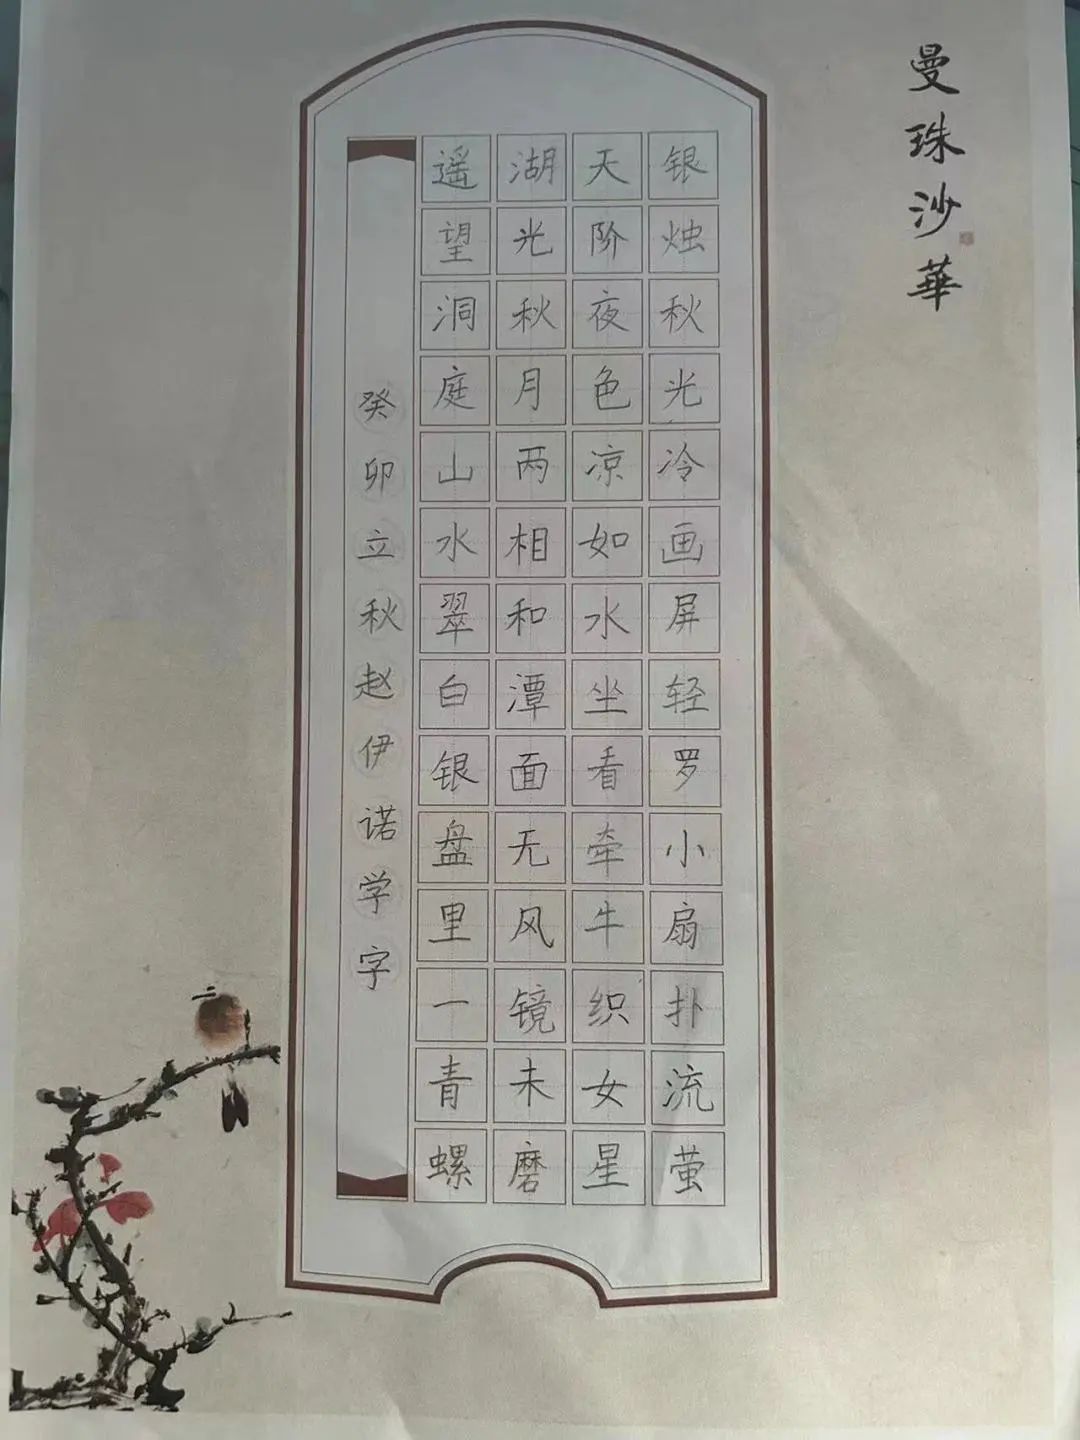 曼珠沙華
银烛秋光冷画屏轻罗小扇扑流萤
天阶夜色凉如水坐看牵牛织女星
湖光秋月两相和潭面无风镜未磨
遥望洞庭山水翠白银盘里一青螺
癸卯立秋赵伊诺学字